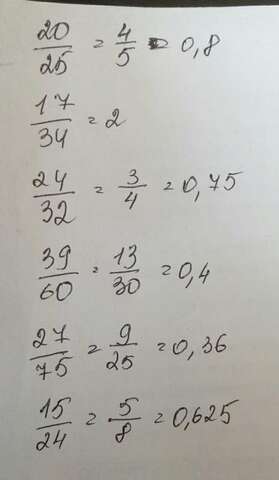 20/25 = 4/5 = 0,8
17/34 = 2
24/32 = 3/4 = 0,75
39/60 = 13/30 = 0,4
27/75 = 9/25 = 0,36
15/24 = 5/8 = 0,625